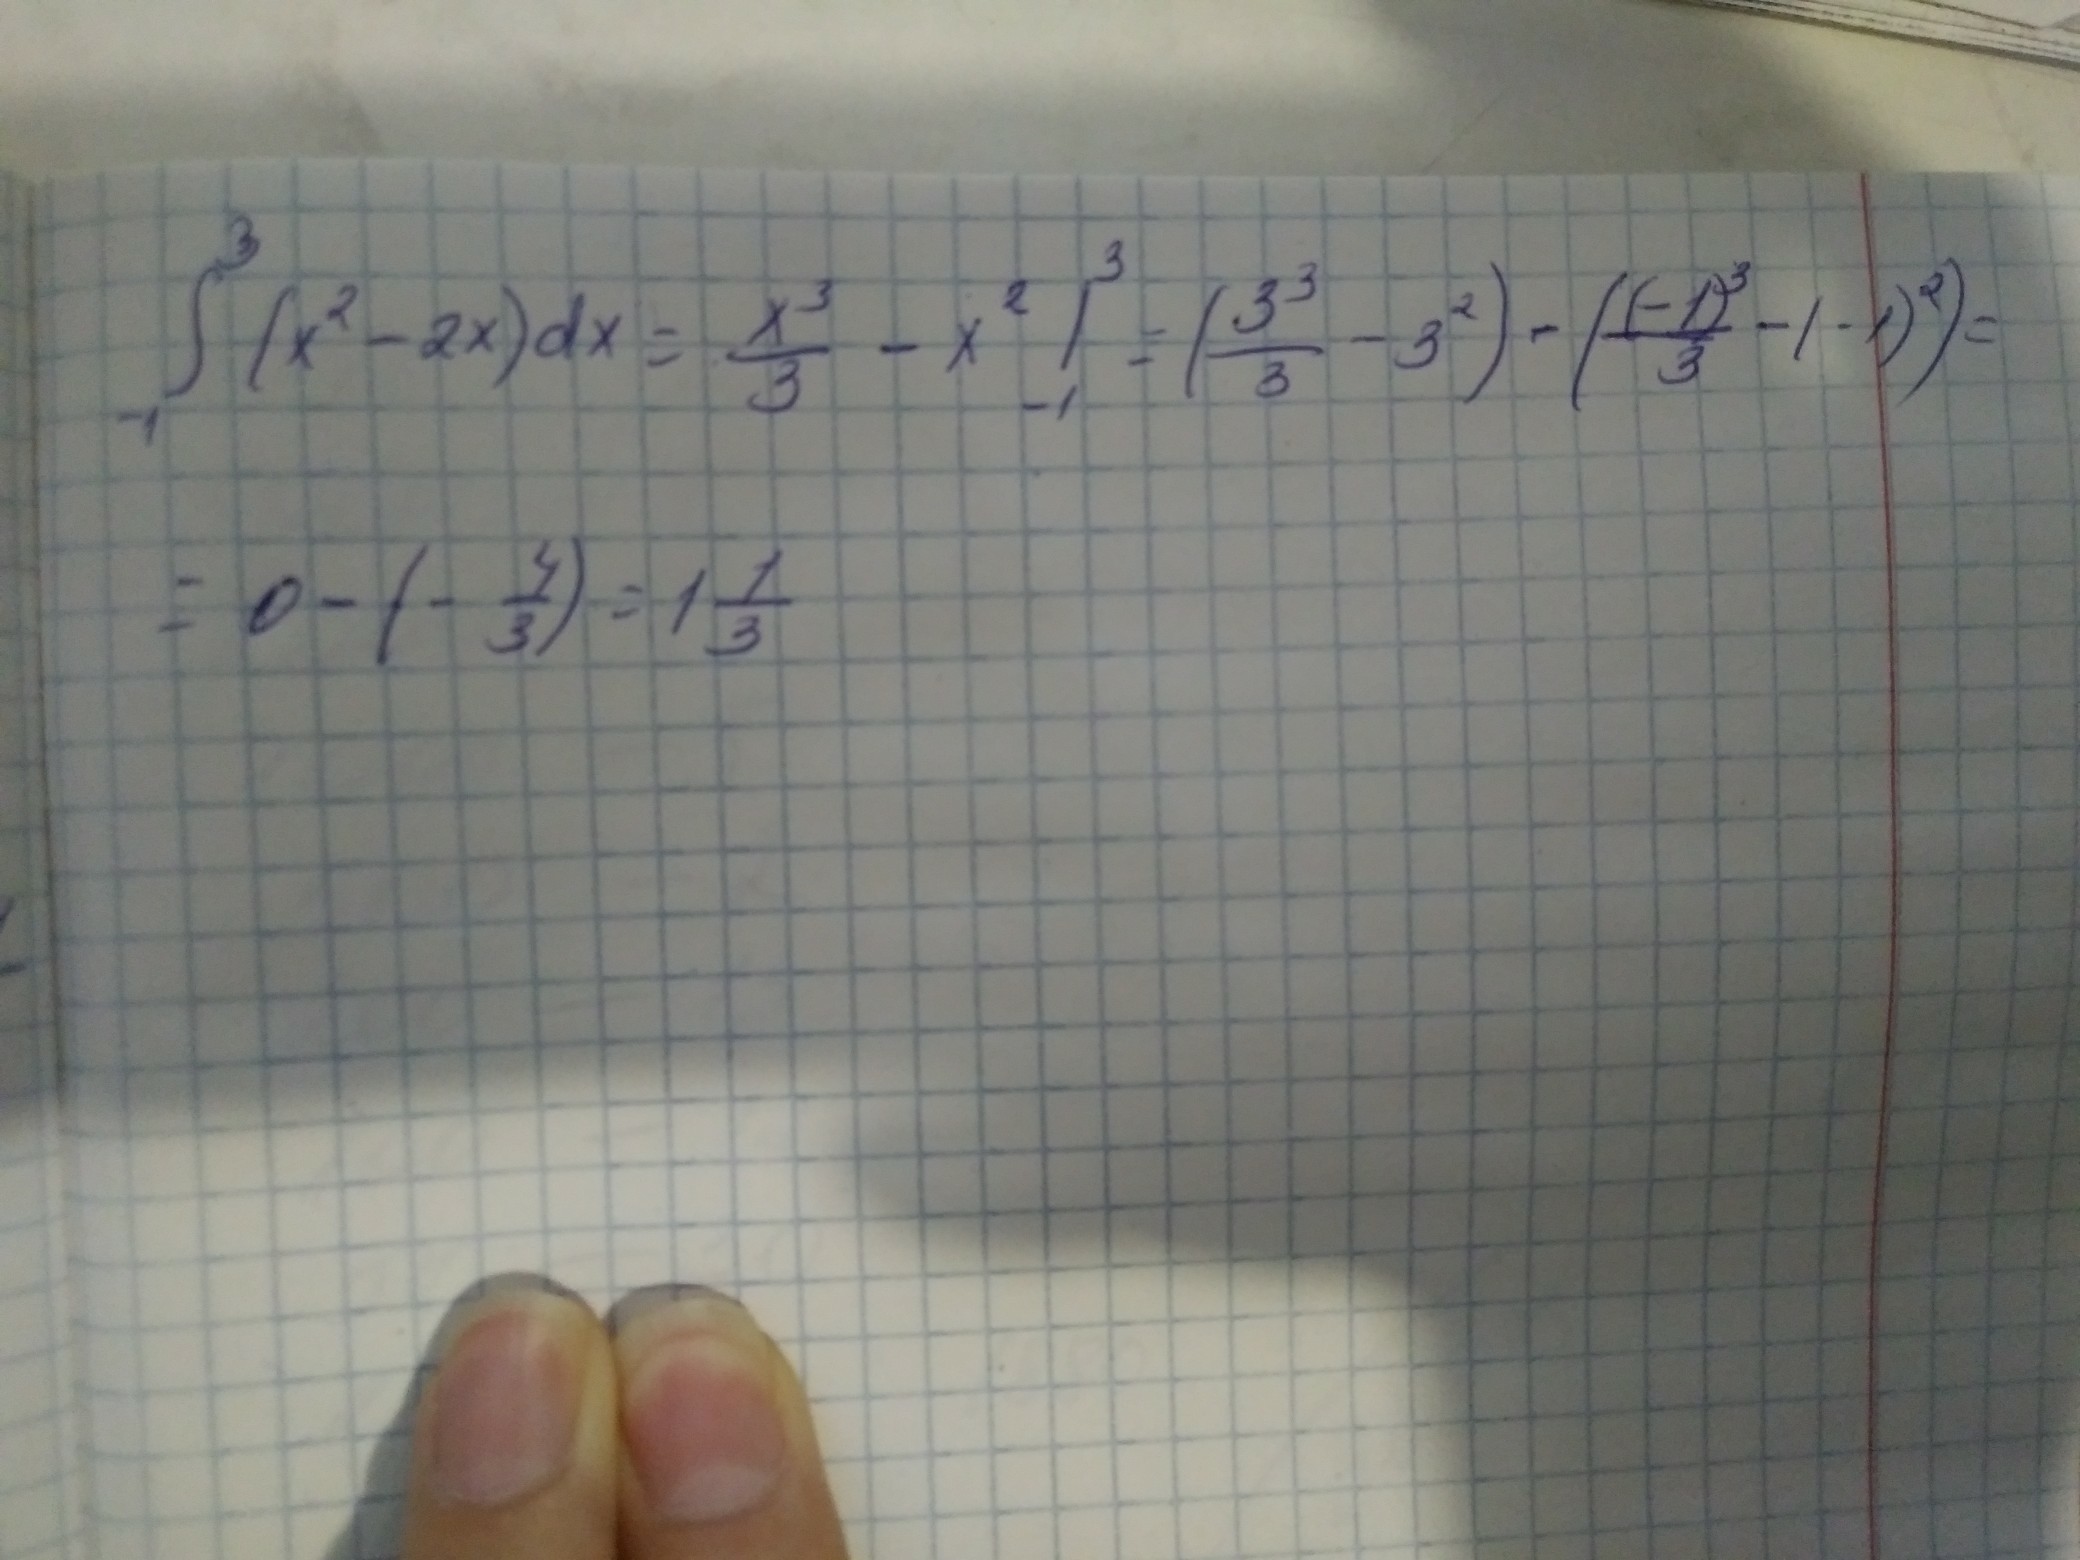 ∫_{-1}^{3} (x² - 2x)dx = x³/3 - x² |_{-1}^{3} = (3³/3 - 3²) - ((-1)³/3 - (-1)²) =
= 0 - (- 4/3) = 1 1/3